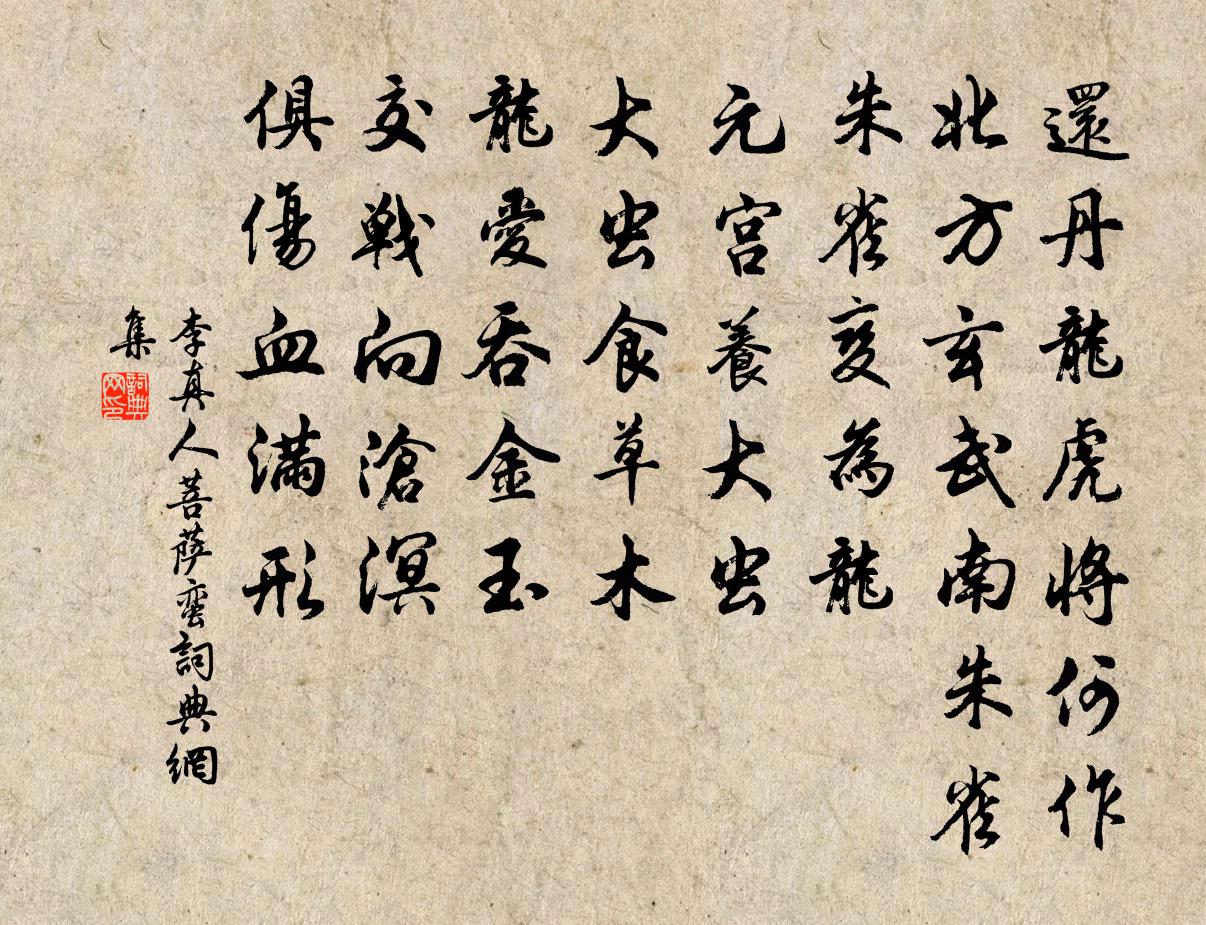 還丹龍虎將何作
北方玄武南朱雀
朱雀變為龍
元宮養大虫
大虫食草木
龍愛吞金玉
交戰向滄溟
俱傷血滿形
李真人菩薩蠻詞典網
集
詞典
网印